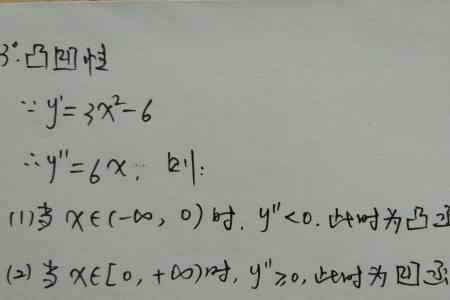 3°.凸凹性
∵ y'=3x²-6
∴ y''=6x; 则:
(1)当 x∈(-∞, 0)时, y''<0. 此时为凸
(2)当 x∈[0, +∞)时, y''≥0, 此时为凹函